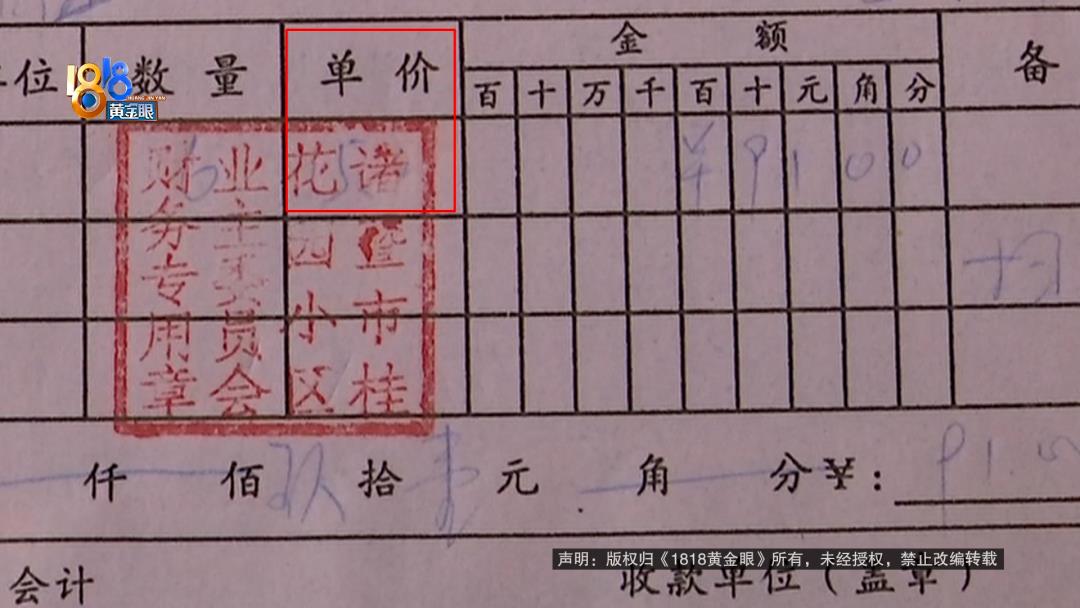 位 数量 单价 金额 备
百 十 万 千 百 十 元 角 分
1818
HUANG JIN YAN
黄金眼
¥ 9 1 0 0
诸暨市桂
花园小区
业主委员会
财务专用章
仟 佰 玖 拾 壹 元 角 分 ¥: 91.00
声明：版权归《1818黄金眼》所有，未经授权，禁止改编转载
会计 收款单位（盖章）